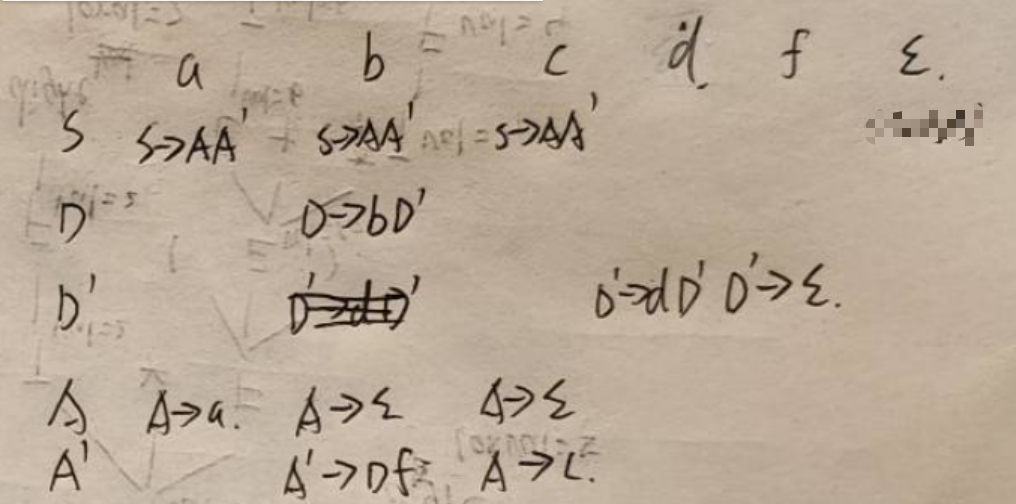 a b c d f ε.
S S→AA' S→AA' S→AA'
D D→bD'
D' D'→dD' D'→dD' D'→ε.
A A→a. A→ε A→ε
A' A'→Df A→c.